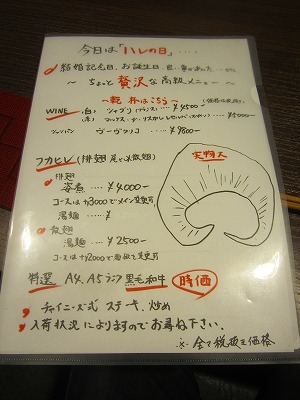 今日は「ハレの日」....
結婚記念日、お誕生日、良い事があった...etc
～ ちょっと贅沢な高級メニュー ～
～乾杯はこちら～
WINE (白) シャブリ(フランス).... ¥4500-
(赤)
シャンパン ヴーヴクリコ .... ¥9800-
フカヒレ (排翅
実物大
排翅
姿煮 .... ¥4000-
コースは+3000で
湯麺 .... ¥
散翅
湯麺 .... ¥2500-
コースは+2000で
特選 A4、A5ランク 黒毛和牛 時価
チャイニーズ式 ステーキ、炒め
入荷状況によりますのでお尋ね下さい。
※全て税込価格